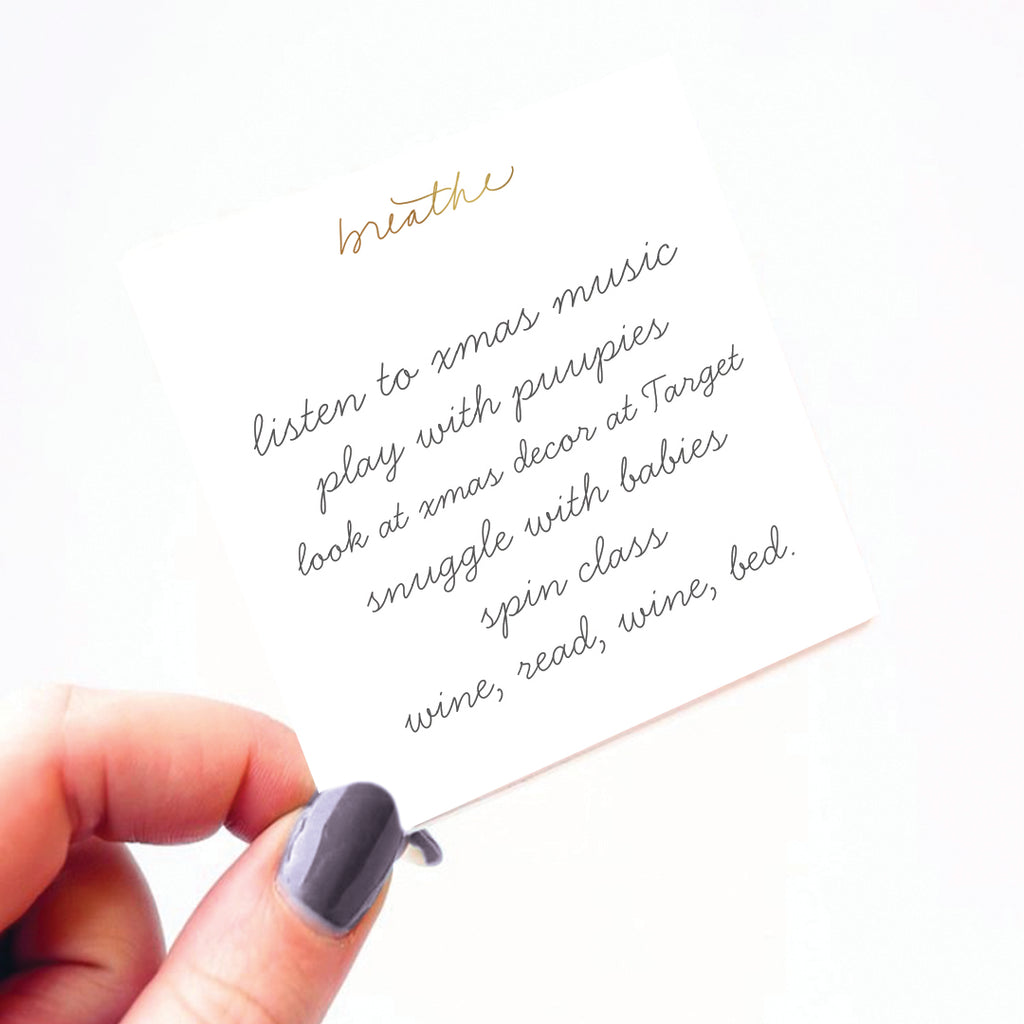 breathe
listen to xmas music
play with puupies
look at xmas decor at Target
snuggle with babies
spin class
wine, read, wine, bed.